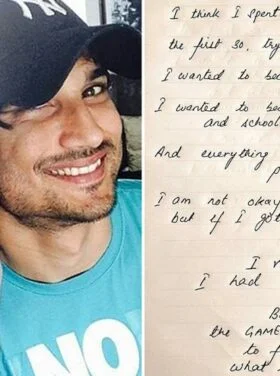 NY
NO
I think I spent
the first 30, try
I wanted to be
I wanted to be
and school
And everything
I am not okay
but if I got
I
I had
B
the GAME
to f
what